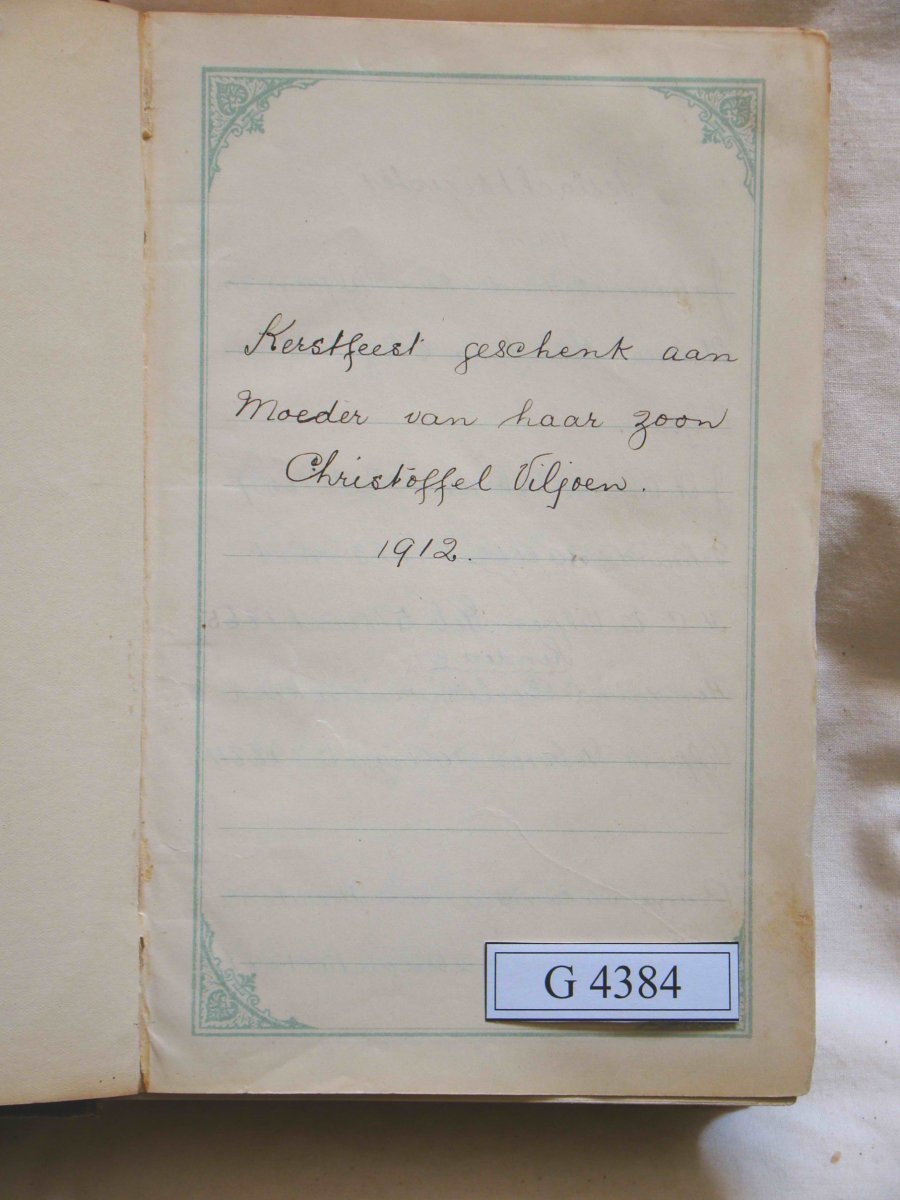 Kerstfeest geschenk aan
Moeder van haar zoon
Christoffel Viljoen.
1912.
G 4384